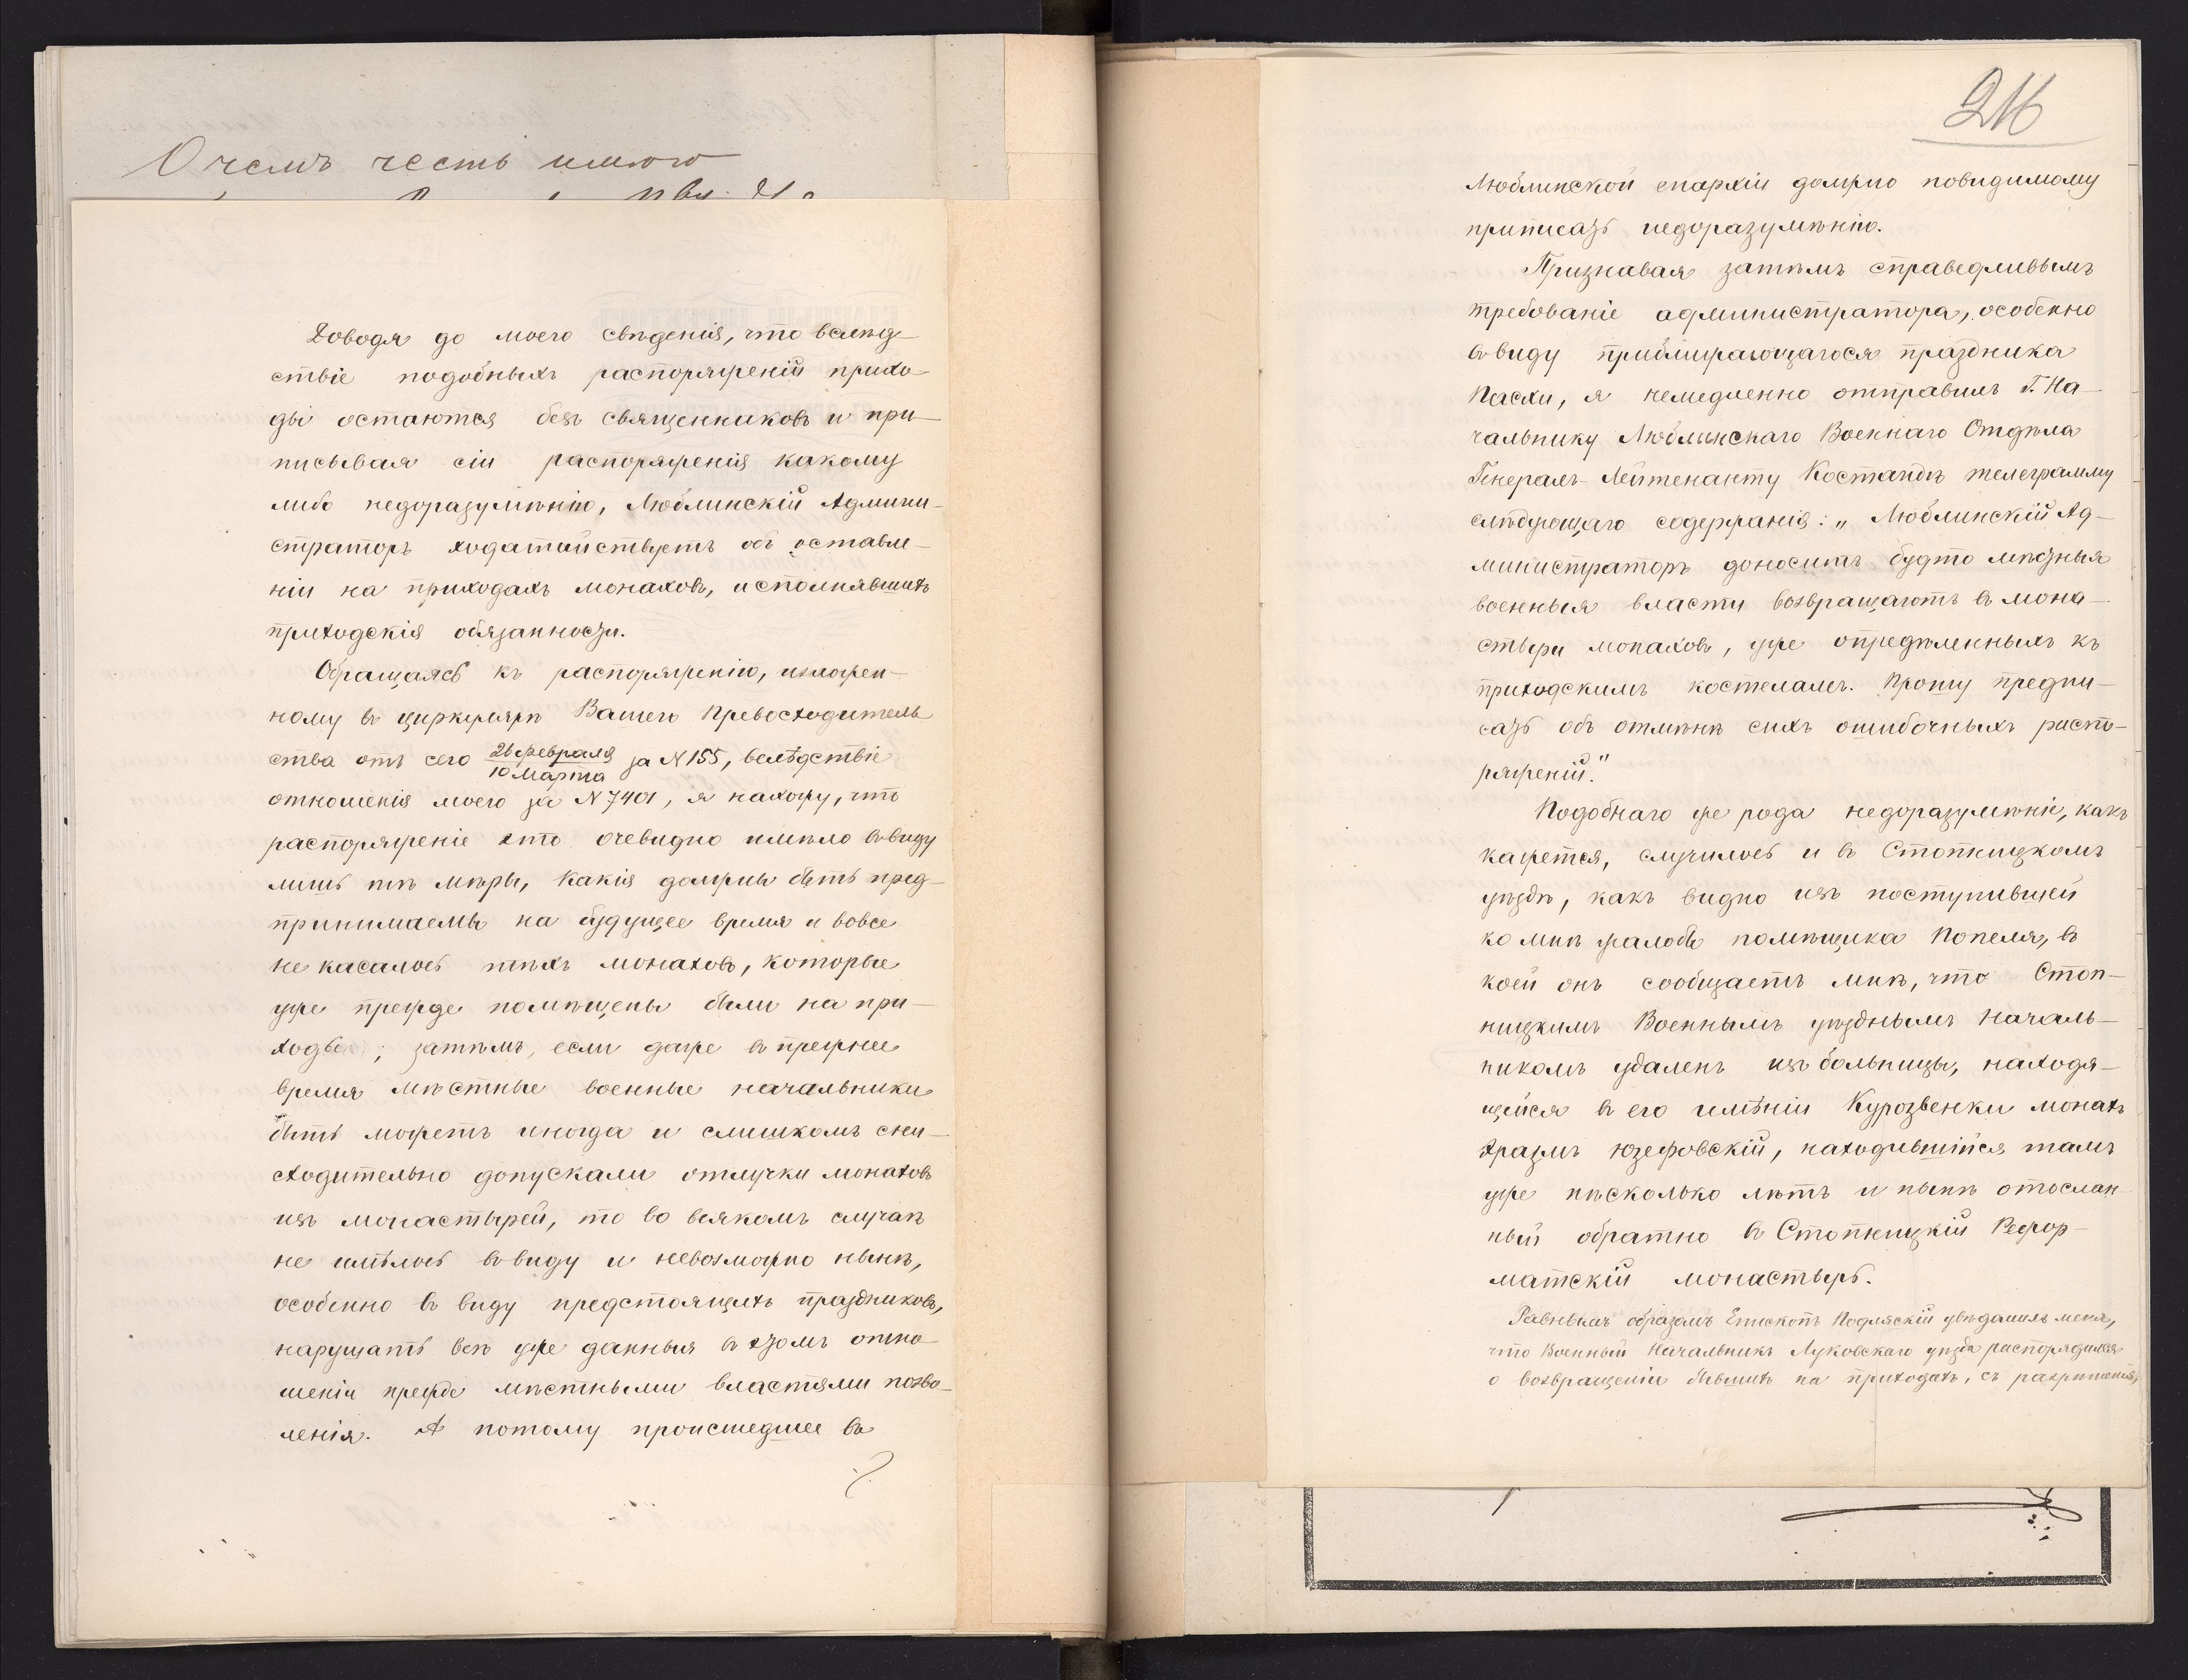 О чемъ честь имѣю
Доводя до моего свѣденія, что вслѣд-
ствіе подобныхъ распоряженій прихо-
ды остаются безъ священниковъ и при-
писывая сіи распоряженія какому
либо недоразумѣнію, Люблинскій Админи-
страторъ ходатайствуетъ объ оставле-
ніи на приходахъ монаховъ, исполнявшихъ
приходскія обязанности.
Обращаясь къ распоряженію, изложен-
ному въ циркулярѣ Вашего Превосходитель
ства отъ сего 26 февраля
10 Марта за N 155, вслѣдствіе
отношенія моего за N 7401, я нахожу, что
распоряженіе это очевидно имѣло ввиду
лишь тѣ мѣры, какія должны быть пред-
принимаемы на будущее время и вовсе
не касалось тѣхъ монаховъ, которые
уже прежде помѣщены были на при-
ходы; затѣмъ, если даже въ прежнее
время мѣстные военные начальники
быть можетъ иногда и слишкомъ сни-
сходительно допускали отлучки монаховъ
изъ монастырей, то во всякомъ случаѣ
не имѣлось ввиду и невозможно нынѣ,
особенно въ виду предстоящихъ праздниковъ,
нарушать всѣ уже данныя въ этомъ отно-
шеніи прежде мѣстными властями позво-
ленія. А потому происшедшее въ
216
Люблинской епархіи должно повидимому
приписать недоразумѣнію.
Признавая затѣмъ справедливымъ
требованіе администратора, особенно
ввиду приближающагося праздника
Пасхи, я немедленно отправилъ Г. На-
чальнику Люблинскаго Военнаго Отдѣла
Генералъ-Лейтенанту Костандѣ телеграмму
слѣдующаго содержанія: „Люблинскій Ад-
министраторъ доноситъ будто мѣстныя
военныя власти возвращаютъ въ мона-
стыри монаховъ, уже опредѣленныхъ къ
приходскимъ костеламъ. Прошу предпи-
сать объ отмѣнѣ сихъ ошибочныхъ распо-
ряженій."
Подобнаго же рода недоразумѣніе, какъ
кажется, случилось и въ Стопницкомъ
уѣздѣ, какъ видно изъ поступившей
ко мнѣ жалобы помѣщика Попеля, въ
коей онъ сообщаетъ мнѣ, что Стоп-
ницкимъ Военнымъ уѣзднымъ Началь-
никомъ удаленъ изъ больницы, находя-
щейся въ его имѣніи Курозвенки монахъ
Эразмъ Юзефовскій, находившійся тамъ
уже нѣсколько лѣтъ и нынѣ отослан-
ный обратно въ Стопницкій Рефор-
матскій монастырь.
Равнымъ образомъ Епископъ Подляскій увѣдомилъ меня,
что Военный Начальникъ Луковскаго уѣзда распорядился
о возвращеніи бывшихъ на приходахъ, съ разрѣшенія,